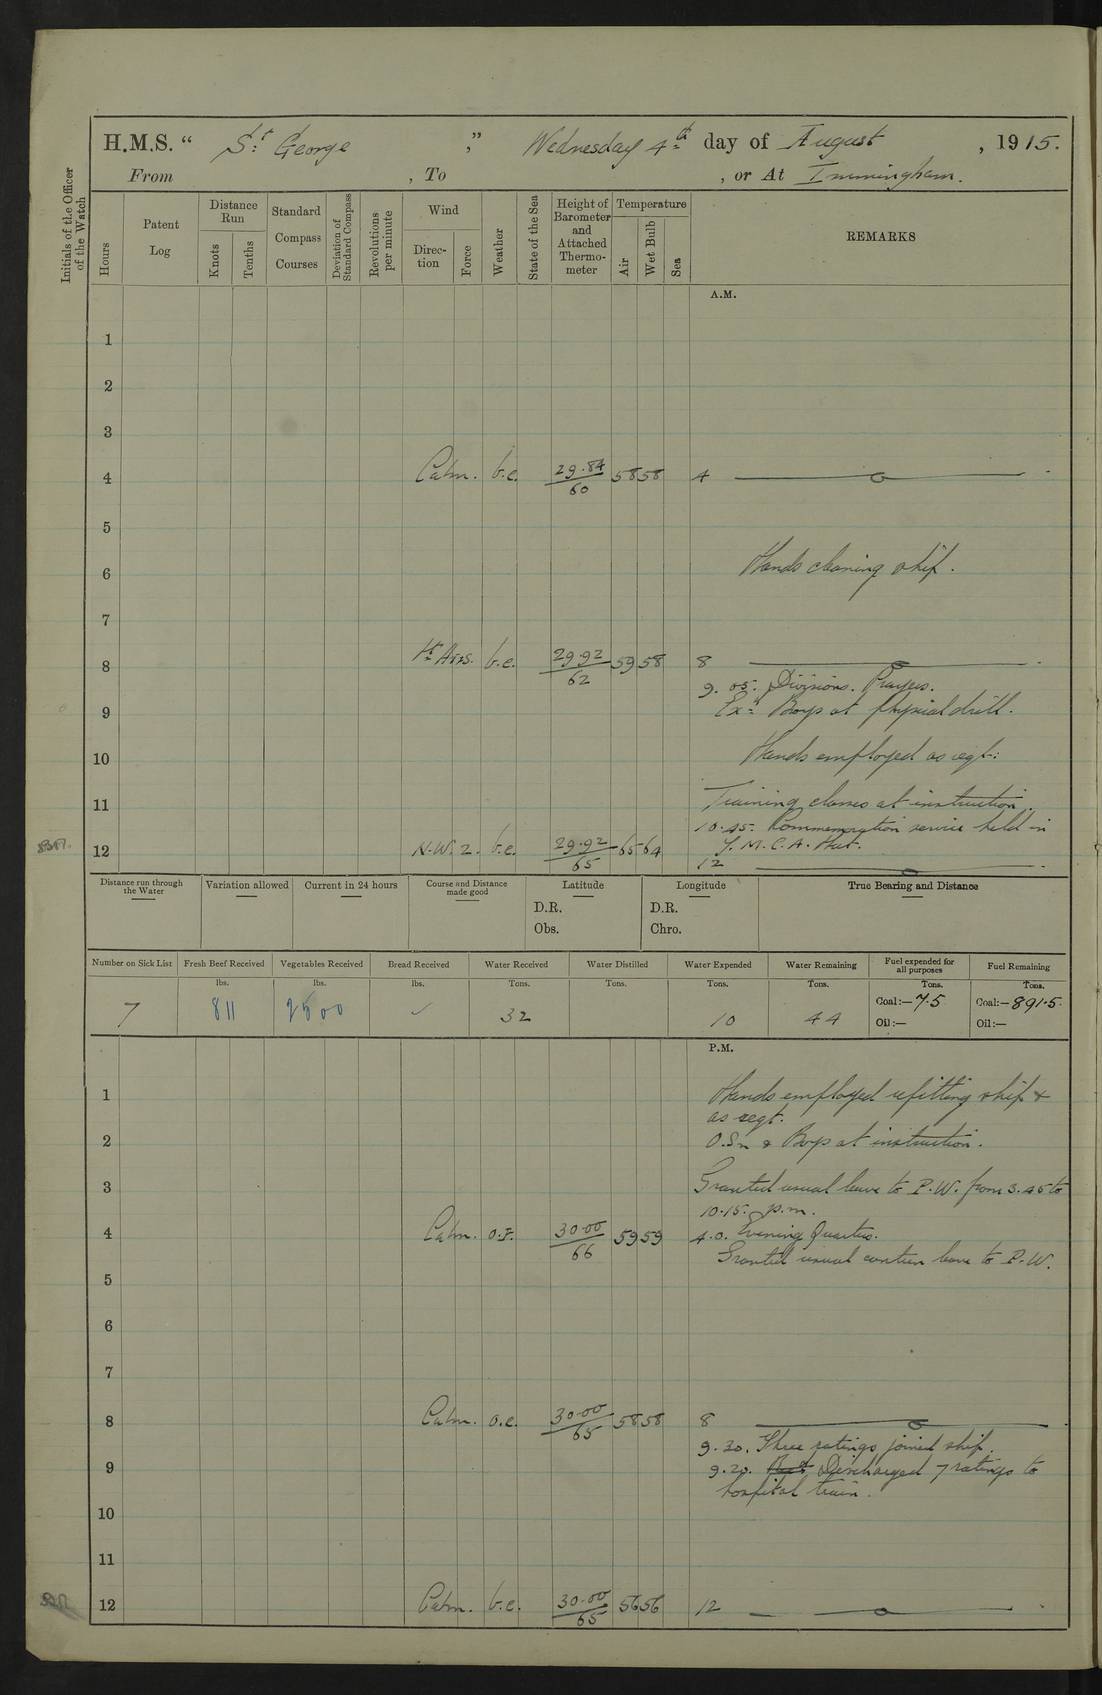 H.M.S. " St George ," Wednesday 4th day of August , 1915.
From , To , or At Immingham.
Initials of the Officer of the Watch
Hours
Patent Log
Distance Run
Knots
Tenths
Standard Compass Courses
Deviation of Standard Compass
Revolutions per minute
Wind
Direction
Force
Weather
State of the Sea
Height of Barometer and Attached Thermometer
Temperature
Air
Wet Bulb
Sea
REMARKS
A.M.
1
2
3
4 Calm. b.c. 29.84/60 58 58 4
5
6 Hands cleaning ship.
7
8 Lt Airs. b.c. 29.92/62 59 58 8
9.05. Divisions. Prayers.
9 Exd Boys at physical drill.
10 Hands employed as reqt:
11 Training classes at instruction.
10.45. Commemoration service held in
12 N.W. 2. b.c. 29.92/65 65 64 Y.M.C.A. Hut.
12
Distance run through the Water
Variation allowed
Current in 24 hours
Course and Distance made good
Latitude
D.R.
Obs.
Longitude
D.R.
Chro.
True Bearing and Distance
Number on Sick List Fresh Beef Received Vegetables Received Bread Received Water Received Water Distilled Water Expended Water Remaining Fuel expended for all purposes Fuel Remaining
lbs. lbs. lbs. Tons. Tons. Tons. Tons. Tons. Tons.
7 811 2500 ✓ 32 10 44 Coal:— 7.5 Coal:— 891.5
Oil:— Oil:—
P.M.
1 Hands employed refitting ship &
as reqt.
2 O.Sn & Boys at instruction.
3 Granted usual leave to P.W. from 3.45 to
10.15. p.m.
4 Calm. o.f. 30.00/66 59 59 4.0. Evening Quarters.
Granted usual canteen leave to P.W.
5
6
7
8 Calm. o.c. 30.00/65 58 58 8
9.20. Three ratings joined ship.
9 9.20. Discharged 7 ratings to
hospital train.
10
11
12 Calm. b.c. 30.00/65 56 56 12